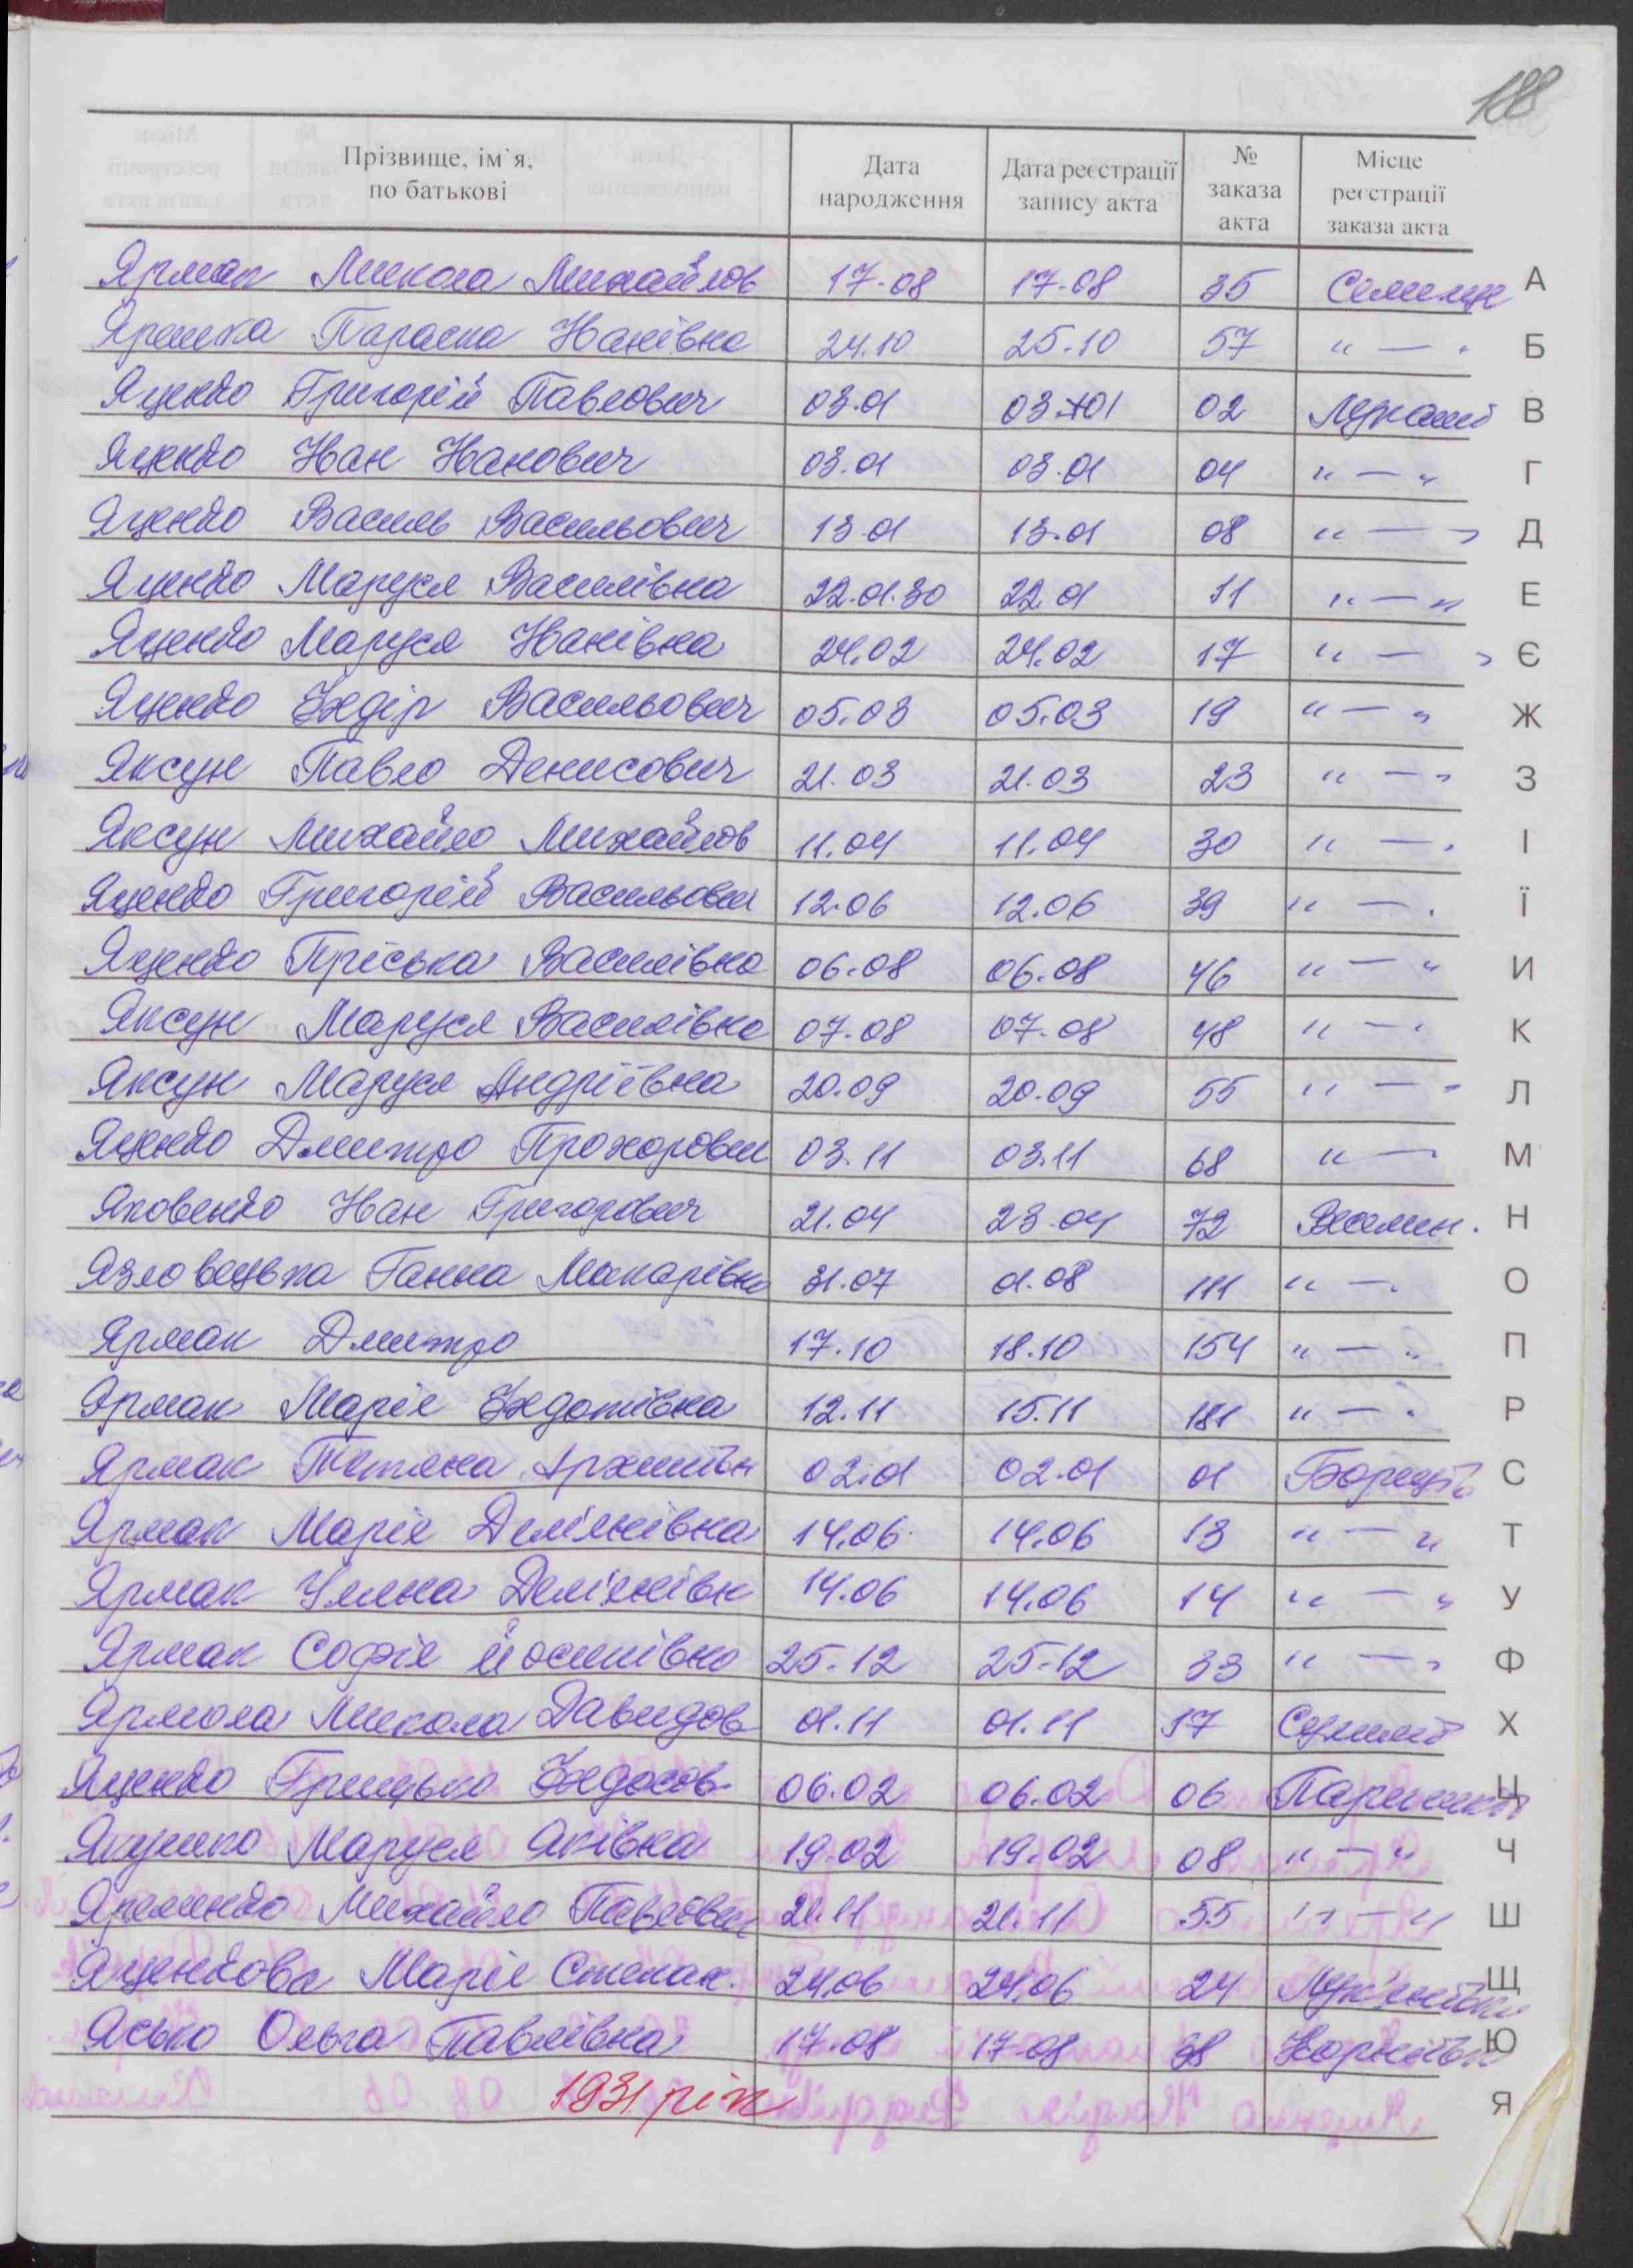 188
Прізвище, ім`я, по батькові | Дата народження | Дата реєстрації запису акта | № заказа акта | Місце реєстрації заказа акта
Ярмак Микола Михайлов 17-08 17-08 35 А
Ярошка Параска Іванівна 24.10 25.10 57 " — " Б
Яценко Григорій Павлович 03.01 03.01 02 В
Яценко Іван Іванович 03.01 03.01 04 " — " Г
Яценко Василь Васильович 13.01 13.01 08 " — " Д
Яценко Маруся Василівна 22.01.30 22.01 11 " — " Е
Яценко Маруся Іванівна 24.02 24.02 17 " — " Є
Яценко Федір Васильович 05.03 05.03 19 " — " Ж
Яксун Павло Денисович 21.03 21.03 23 " — " З
Яксун Михайло Михайлов 11.04 11.04 30 " — " І
Яценко Григорій Васильович 12.06 12.06 39 " — " Ї
Яценко Пріська Василівна 06.08 06.08 46 " — " И
Яксун Маруся Василівна 07.08 07.08 48 " — " К
Яксун Маруся Андріївна 20.09 20.09 55 " — " Л
Яценко Дмитро Прохорович 03.11 03.11 68 " — М
Яковенко Іван Григорович 21.04 23.04 72 Н
Язловецька Ганна Макарівна 31.07 01.08 111 " — " О
Ярмак Дмитро 17.10 18.10 154 " — " П
Ярмак Марія Федотівна 12.11 15.11 181 " — " Р
Ярмак Тетяна Архипівн 02.01 02.01 01 С
Ярмак Марія Дем'янівна 14.06 14.06 13 " — " Т
Ярмак Уляна Дем'янівн 14.06 14.06 14 " — " У
Ярмак Софія Йосипівна 25-12 25-12 33 " — " Ф
Ярмола Микола Давидов 01.11 01.11 17 Х
Яценко Грицько Федосов 06.02 06.02 06 Ц
Якушко Маруся Яківна 19.02 19.02 08 " — " Ч
Михайло Павлович 21.11 21.11 55 " — " Ш
Яценкова Марія Степан. 24.06 24.06 24 Лук'янівка Щ
Ясько Ольга Павлівна 17.08 17.08 38 Ю
1931 рік Я